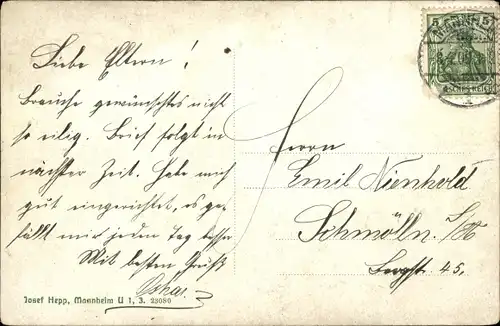 Liebe Eltern!
Brauche gewünschtes nicht
so eilig. Brief folgt in
nächster Zeit. Habe mich
gut eingerichtet, es ge-
fällt mir jeden Tag besser
Mit besten Gruß
Oskar.
Josef Hepp, Mannheim U 1, 3. 23080
5 5
MANNHEIM
DEUTSCHES REICH
Herrn
Emil Nienhold
Schmölln. S/A
Bergst. 45.